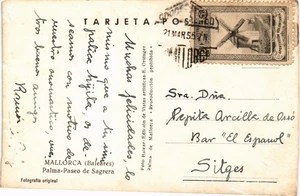 TARJETA POSTAL
21 MAR 55
Muchas felicidades lo
mismo que a tu sim
patica hijita, os de
seamos con motivo de
vuestro onomástico, vues
tros buenos amigos
MALLORCA (Baleares)
Palma-Paseo de Sagrera
Fotografía original
Sra. Dña
Pepita Arcilla de
Bar "El Español"
Sitges